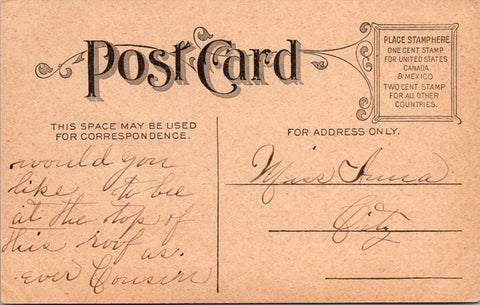 Post Card
PLACE STAMP HERE
ONE CENT STAMP
FOR UNITED STATES
CANADA
& MEXICO
TWO CENT STAMP
FOR ALL OTHER
COUNTRIES.
THIS SPACE MAY BE USED
FOR CORRESPONDENCE.
FOR ADDRESS ONLY.
would you
like to bee
at the top of
this roof as.
ever Consern
Miss Anna
City